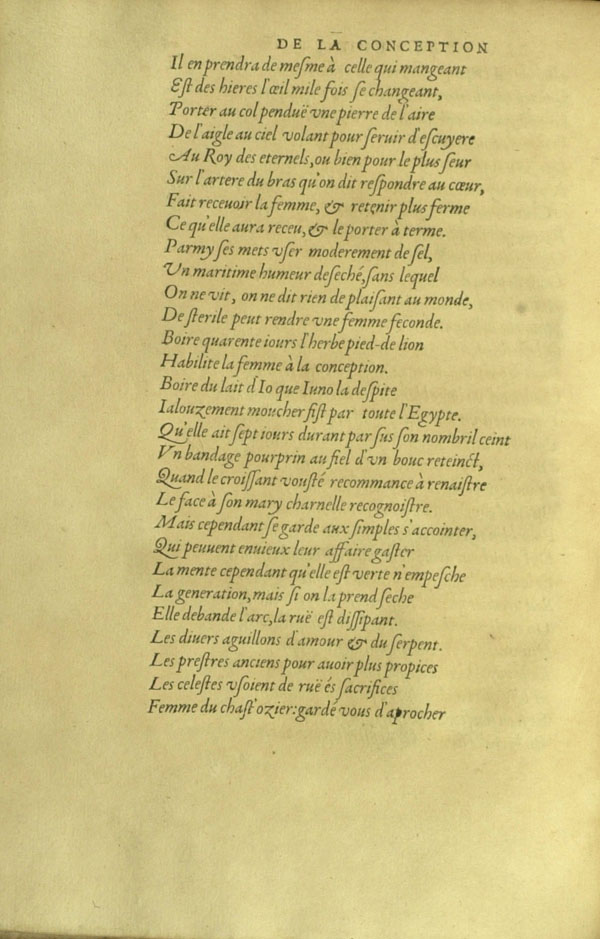 DE LA CONCEPTION
Il en prendra de meſme à celle qui mangeant
Eſt des hieres l'œil mile fois ſe changeant,
Porter au col penduë vne pierre de l'aire
De l'aigle au ciel volant pour ſeruir d'eſcuyere
Au Roy des eternels, ou bien pour le plus ſeur
Sur l'artere du bras qu'on dit reſpondre au cœur,
Fait receuoir la femme, & retenir plus ferme
Ce qu'elle aura receu, & le porter à terme.
Parmy ſes mets vſer moderement de ſel,
Vn maritime humeur deſeché, ſans lequel
On ne vit, on ne dit rien de plaiſant au monde,
De ſterile peut rendre vne femme feconde.
Boire quarente iours l'herbe pied-de lion
Habilite la femme à la conception.
Boire du lait d'Io que Iuno la deſpite
Ialouzement moucher fiſt par toute l'Egypte.
Qu'elle ait ſept iours durant par ſus ſon nombril ceint
Vn bandage pourprin au fiel d'vn bouc reteinct,
Quand le croiſſant vouſté recommance à renaiſtre
Le face à ſon mary charnelle recognoiſtre.
Mais cependant ſe garde aux ſimples s'accointer,
Qui peuuent enuieux leur affaire gaſter
La mente cependant qu'elle eſt verte n'empeſche
La generation, mais ſi on la prend ſeche
Elle debande l'arc, la ruë eſt diſſipant.
Les diuers aguillons d'amour & du ſerpent.
Les preſtres anciens pour auoir plus propices
Les celeſtes vſoient de ruë és ſacrifices
Femme du chaſt' ozier: gardé vous d'aprocher